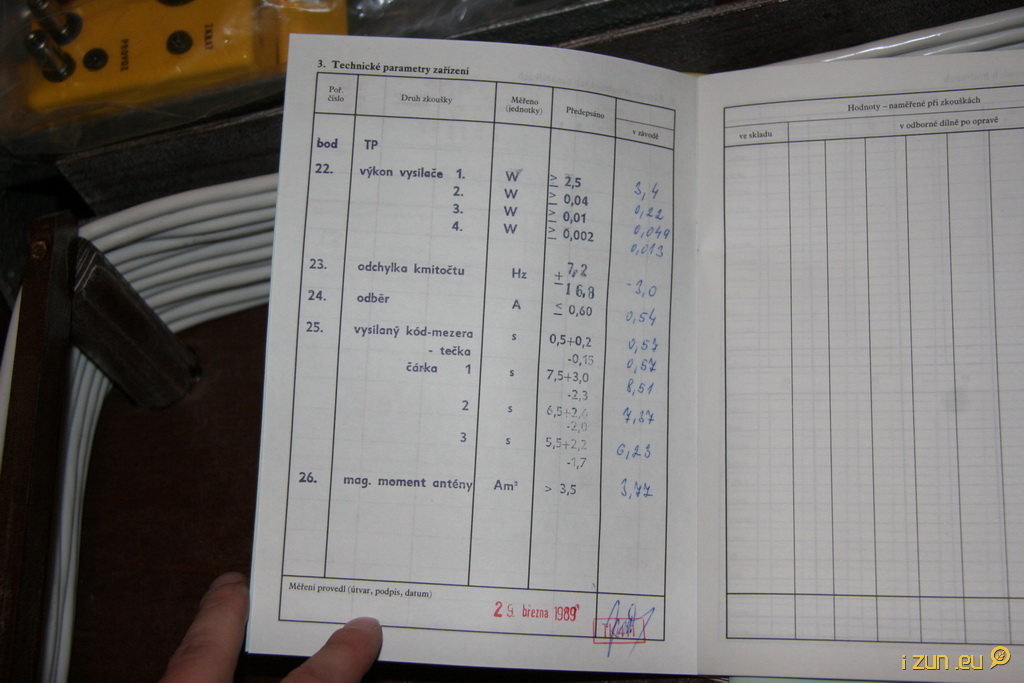 ZKRAT
PROVOZ
3. Technické parametry zařízení
Poř. číslo
Druh zkoušky
Měřeno (jednotky)
Předepsáno
v závodě
bod TP
22. výkon vysilače 1. W ≥ 2,5 3,4
2. W ≥ 0,04 0,22
3. W ≥ 0,01 0,049
4. W ≥ 0,002 0,013
23. odchylka kmitočtu Hz + 7,2 -3,0
- 16,8
24. odběr A ≤ 0,60 0,54
25. vysilaný kód-mezera s 0,5+0,2 0,57
- tečka -0,15 0,67
čárka 1 s 7,5+3,0 8,51
-2,3
2 s 6,5+2,6 7,37
-2,0
3 s 5,5+2,2 6,23
-1,7
26. mag. moment antény Am² > 3,5 3,77
Měření provedl (útvar, podpis, datum)
29. března 1989
Hodnoty – naměřené při zkouškách
ve skladu
v odborné dílně po opravě
i zun .eu